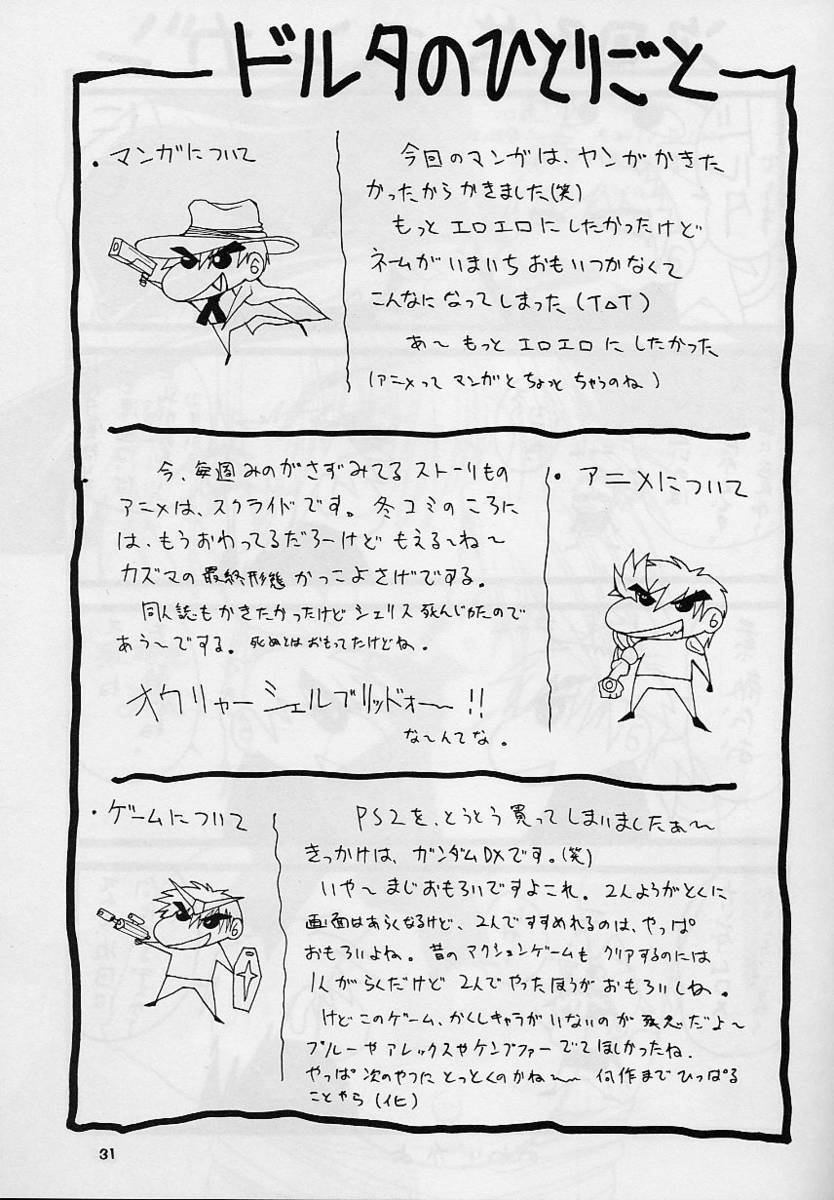 ドルタのひとりごと
・マンガについて
今回のマンガは、ヤンガかきた
かったからかきました(笑)
もっとエロエロにしたかったけど
ネームがいまいちおもいつかなくて
こんなになってしまった(T△T)
あ〜もっとエロエロにしたかった
(アニメってマンガとちょっとちゃうのね)
・アニメについて
今、毎週みのがさずみてるストーリもの
アニメは、スクライドです。冬コミのころに
は、もうおわってるだろーけどもえる〜ね〜
カズマの最終形態かっこよさげでする。
同人誌もかきたかったけどシェリス死んじがたので
あう〜でする。死ぬとはおもってたけどね。
オウリャーシェルブリッドォー〜!!
な〜んてな。
・ゲームについて
PS2を、とうとう買ってしまいましたぁ〜
きっかけは、ガンダムDXです。(笑)
いや〜まじおもろいですよこれ。2人ようがとくに
画面はあらくなるけど、2人ですすめれるのは、やっぱ
おもろいよね。昔のアクションゲームもクリアするのには
1人がらくだけど2人でやったほうがおもろいしね。
けどこのゲーム、かくしキャラがいないのが残念だよ〜
ブルーやアレックスやケンプファーでてほしかったね.
やっぱ次のやつにとっとくのかね〜〜何作までひっぱる
ことやら
31